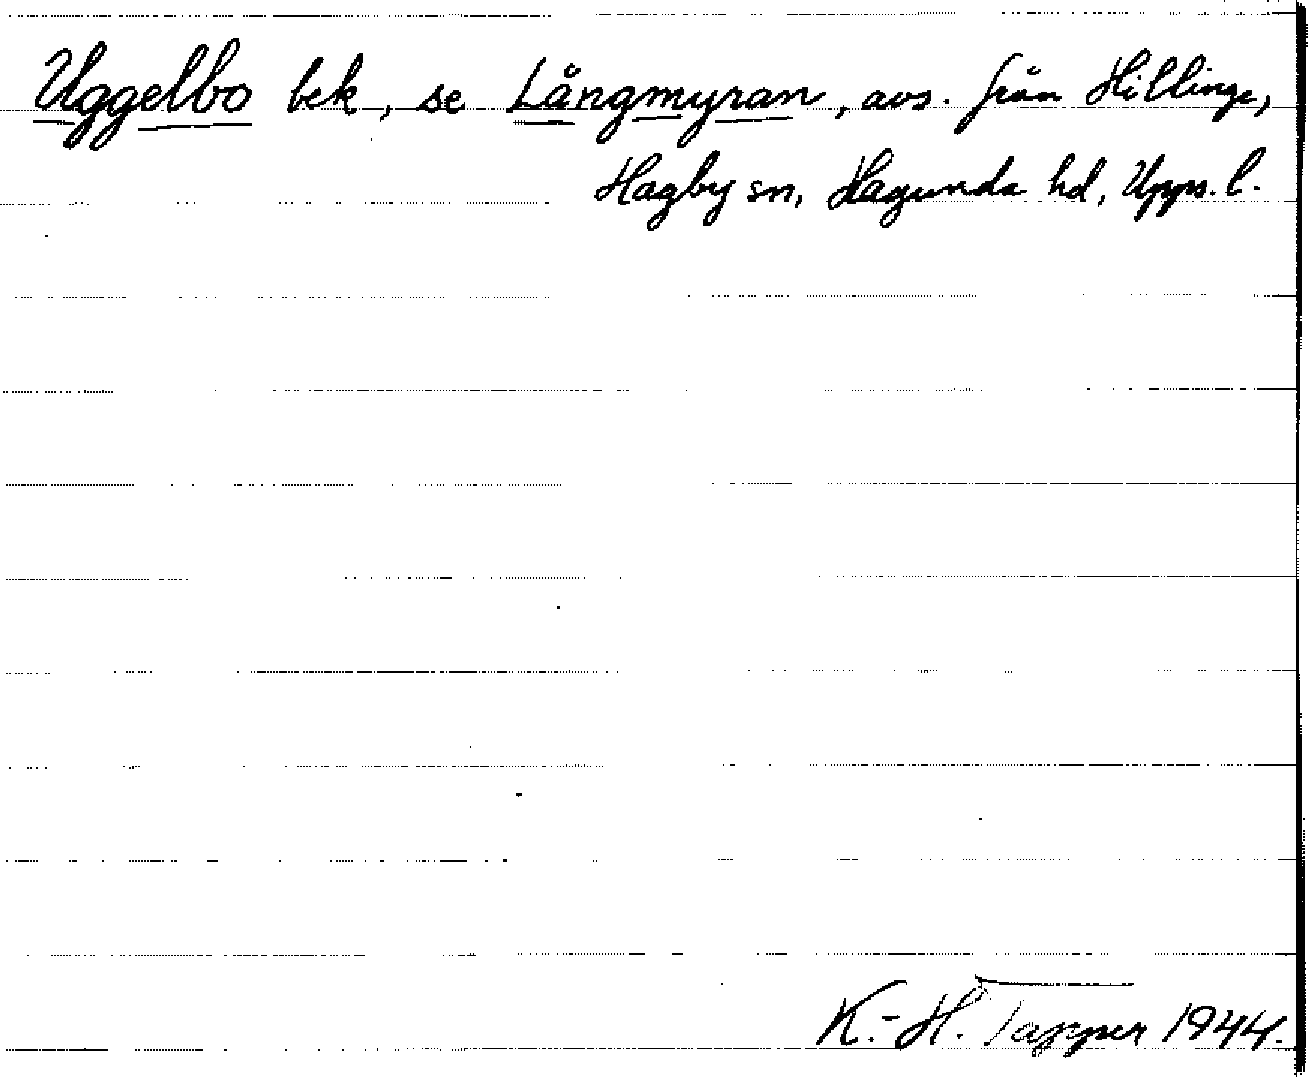 Uggelbo bek, se Långmyran, avs. från Hillinge,
Hagby sn, Hagunda hd, Upps. l.
K.-H. Tapper 1944.